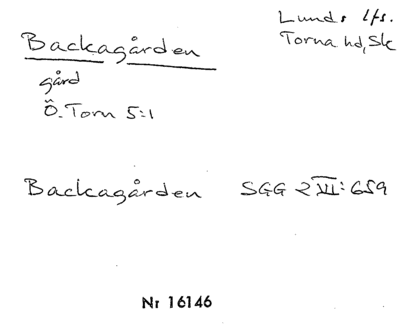 Backagården
Lunds lfs.
Torna hd, Sk
gård
Ö. Torn 5:1
Backagården SGG 2 VI: 659
Nr 16146